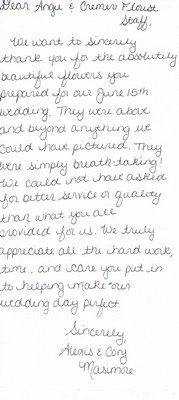 Dear Angie & Cremer Florist
Staff,
We want to sincerely
thank you for the absolutely
beautiful flowers you
prepared for our June 15th
wedding. They were above
and beyond anything we
could have pictured. They
were simply breath-taking!
We could not have asked
for better service or quality
than what you all
provided for us. We truly
appreciate all the hard work,
time, and care you put in
to helping make our
wedding day perfect.
Sincerely,
Alexis & Cory
Masimore